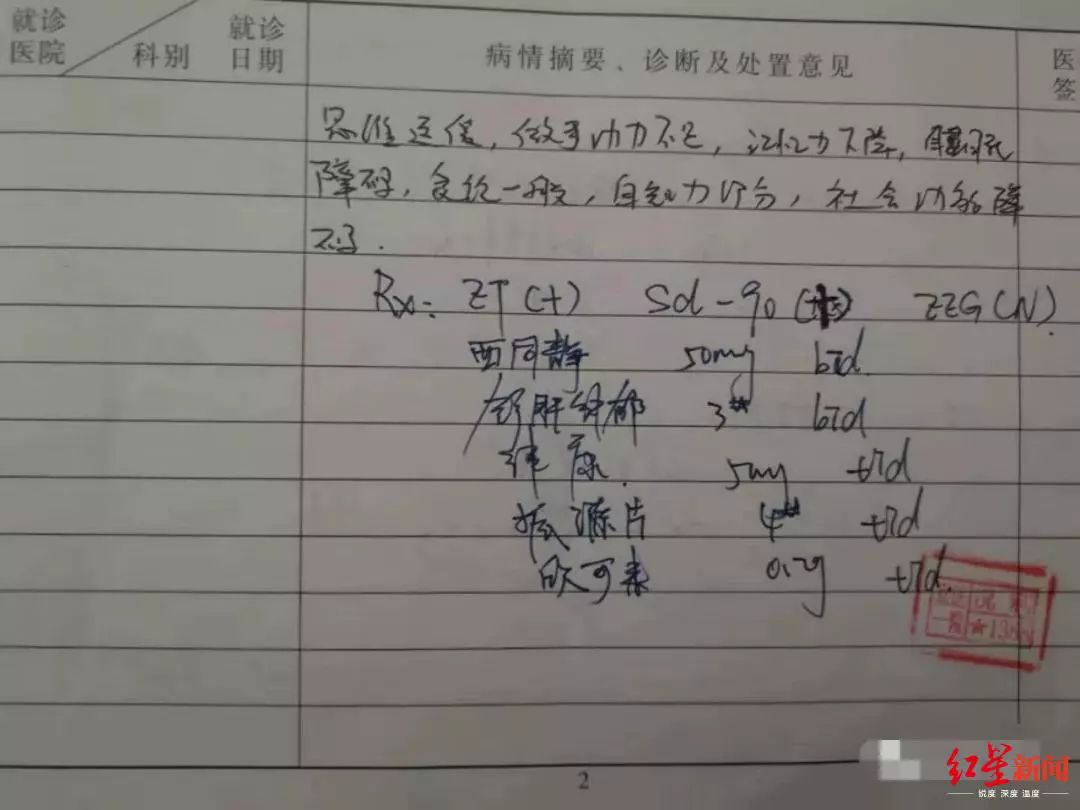 就诊医院 科别 就诊日期 病情摘要、诊断及处置意见 医签
思维迟缓，做事动力不足，记忆力下降，睡眠
障碍，食欲一般，自知力部分，社会功能降
Rx: ZT (+) Scl-90 ZZG (N).
西同静 50mg bid.
舒肝解郁 3# bid
律康. 5mg tid
片 4# tid
欧可来 0.2g tid.
2
红星新闻
锐度 深度 温度